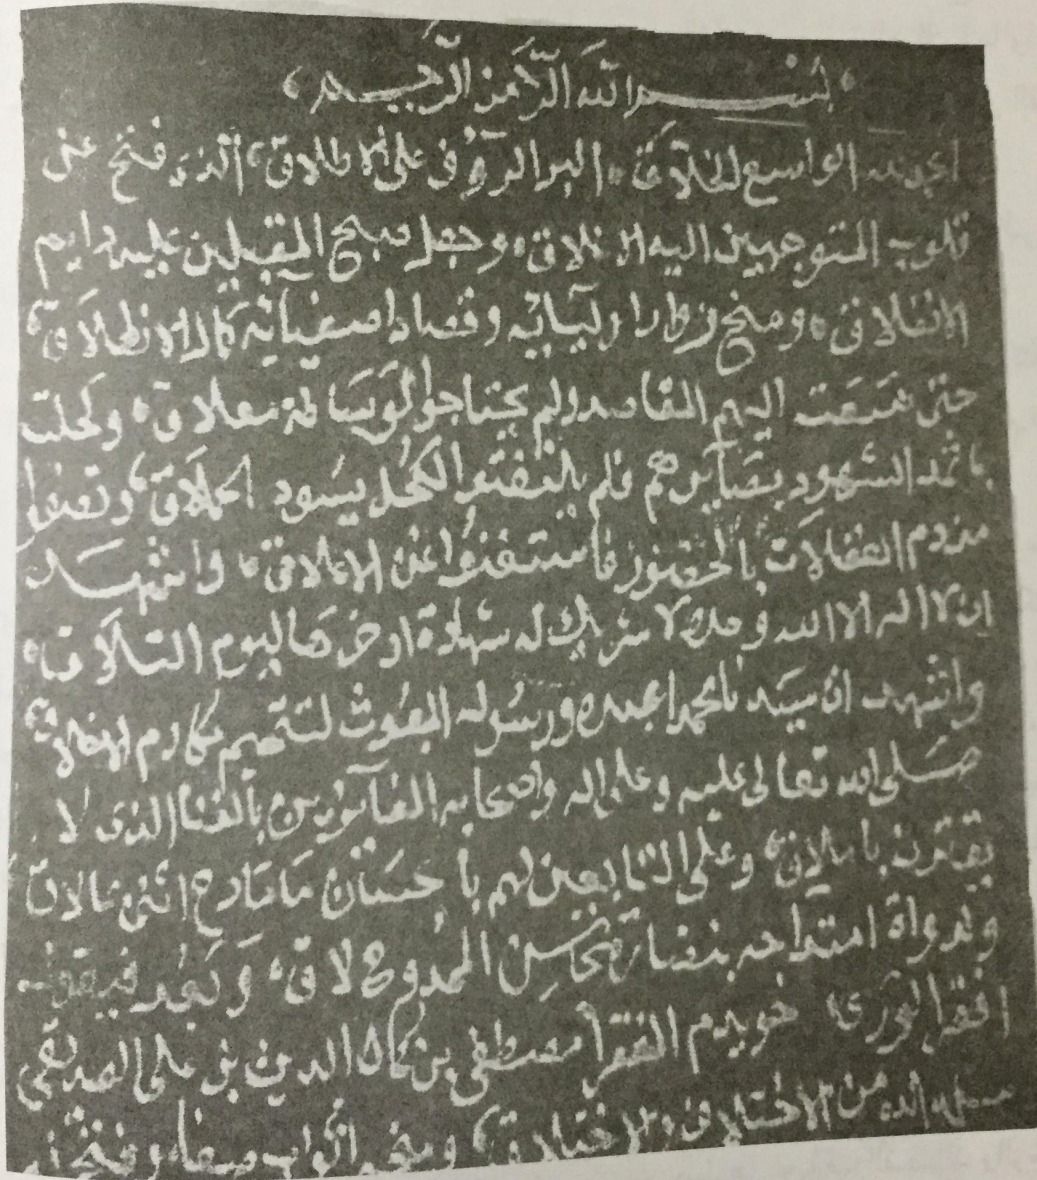 بسم الله الرحمن الرحيم
الحمد لله الواسع الخلاق، البر الرؤف على الاطلاق، الذى فتح عن
قلوب المتوجهين اليه الاغلاق، وجعل صبح المقبلين عليه دايم
الانفلاق، ومنح زوار اوليآئه وقصاد اصفيآئه كمال الانطلاق،
حتى اليهم المقاصد ولم يحتاجوا لوسَاطة سعلاق، وكحلت
باثمد الشهود بصَآئرهم فلم يلتفتوا لكحل يسود الحملاق،
من دم الغفلات بالحضور فاستغنوا عن الاعلاق، واشهد
ان لا اله الا الله وحده لا شريك له شهادة ادخرها ليوم التلاق،
واشهد ان سيدنا محمدا عبده ورسوله المبعوث لتتميم مكارم الاخلاق،
صلى الله تعالى عليه وعلى اله واصحابه الفآئزين بالغنا الذى لا
يقترن باملاق، وعلى التابعين لهم باحسَان ما مادح اثنى بما لاق
ولدواة امتداحه بمحَاسِن الممدوح لاق، وَبَعْد فيقول
افقر الورى خويدم الفقرا مصطفى بن كمال الدين بن على الصديقى
من الاختلاق ومنحه اثواب صفاء